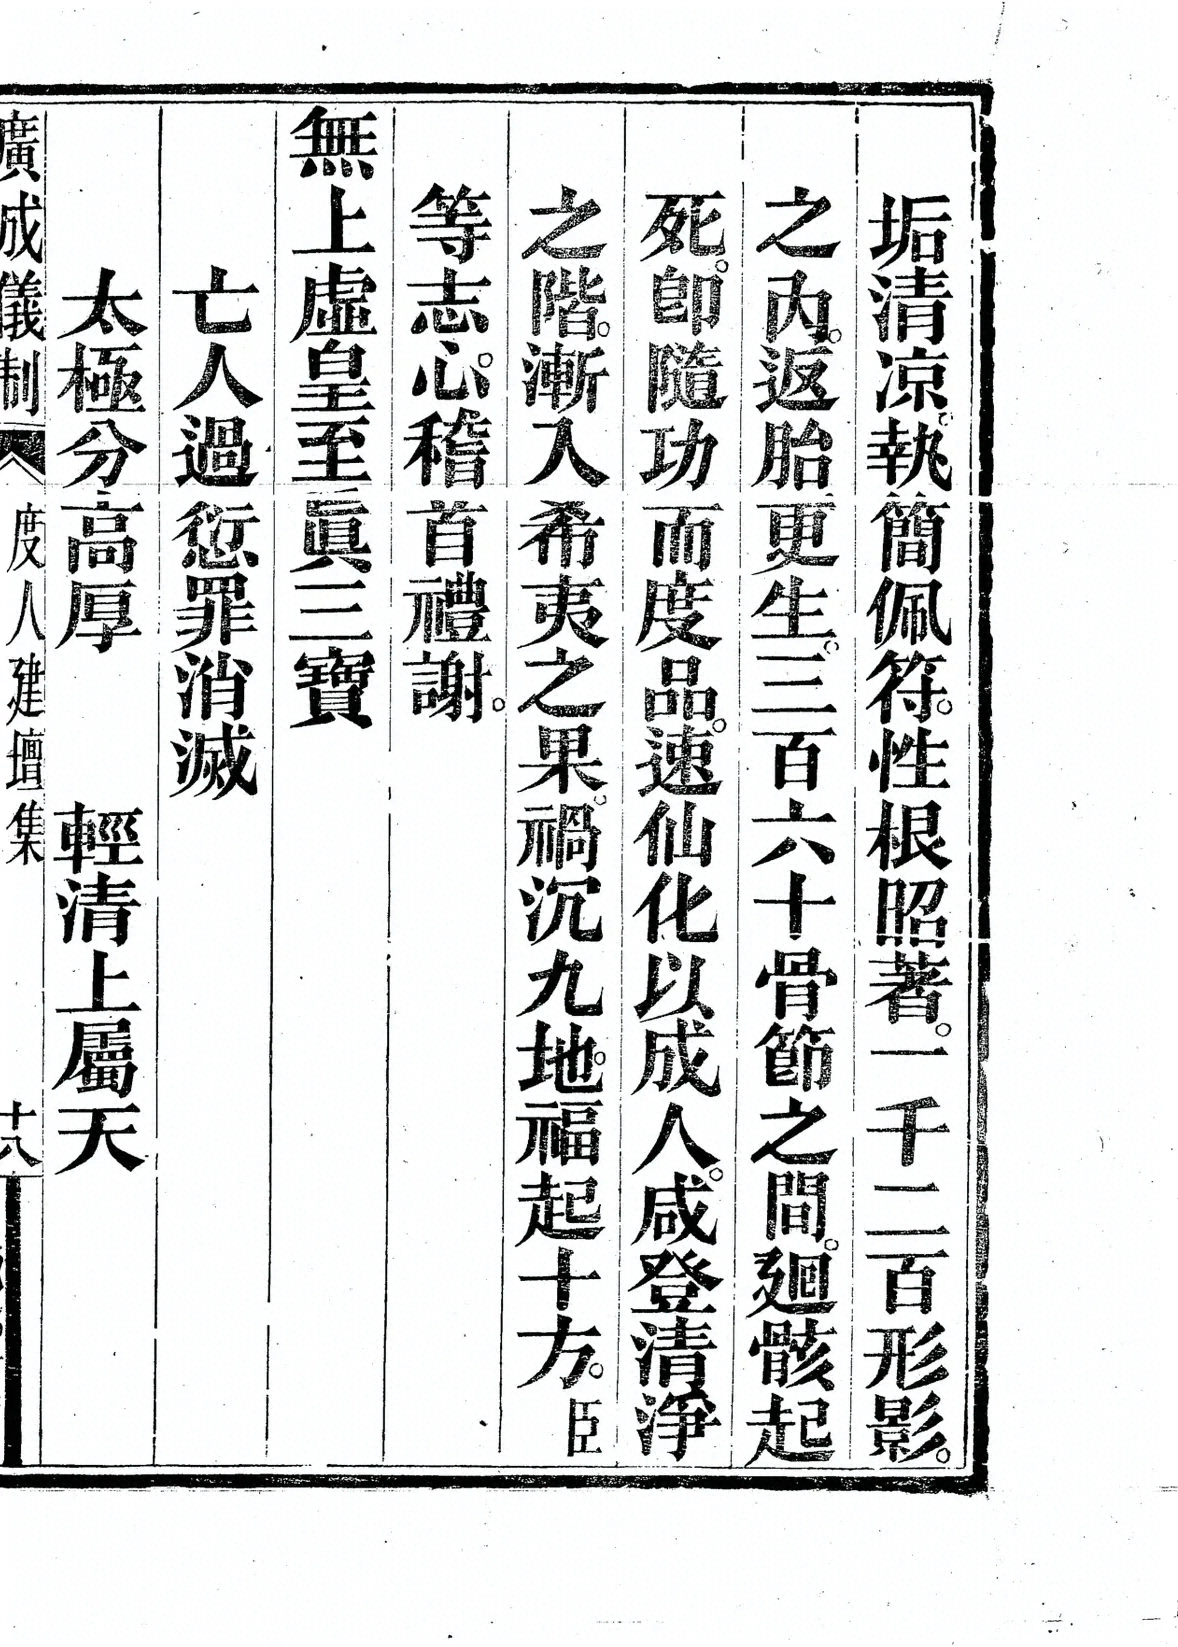 垢清凉。執簡佩符。性根昭著。一千二百形影。
之內。返胎更生。三百六十骨節之間。廻骸起
死。卽隨功而度品。速仙化以成人。咸登清淨
之階。漸入希夷之果。禍沉九地。福起十方。臣
等志心。稽首禮謝。
無上虛皇至眞三寶
亡人過愆罪消滅
太極分高厚　輕清上屬天
廣成儀制　度人建壇集　十八